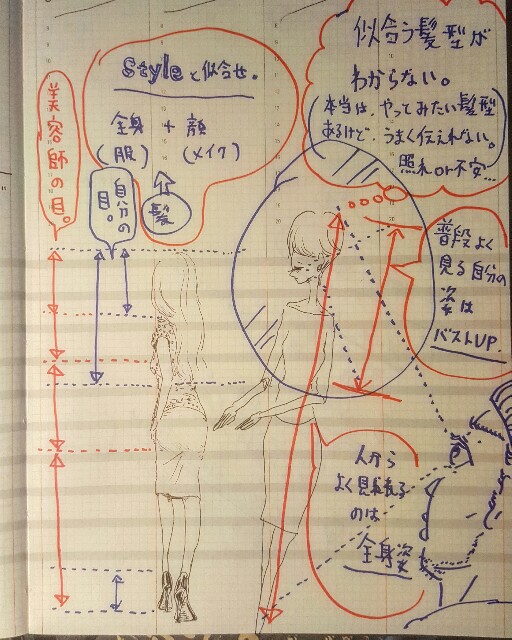 美容師の目。
自分の
目。
Styleと似合せ。
全身 + 顔
(服) (メイク)
髪
似合う髪型が
わからない。
(本当は、やってみたい髪型
あるけど、うまく伝えれない。
照れor不安...
普段よく
見る自分の
姿は
バストUP.
人から
よく見られる
のは
全身姿